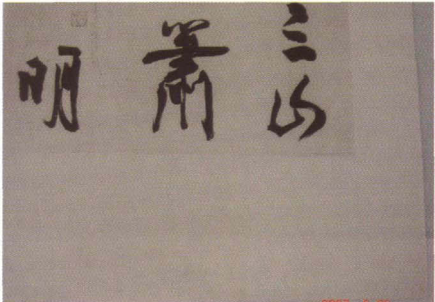 三山
蕭
明